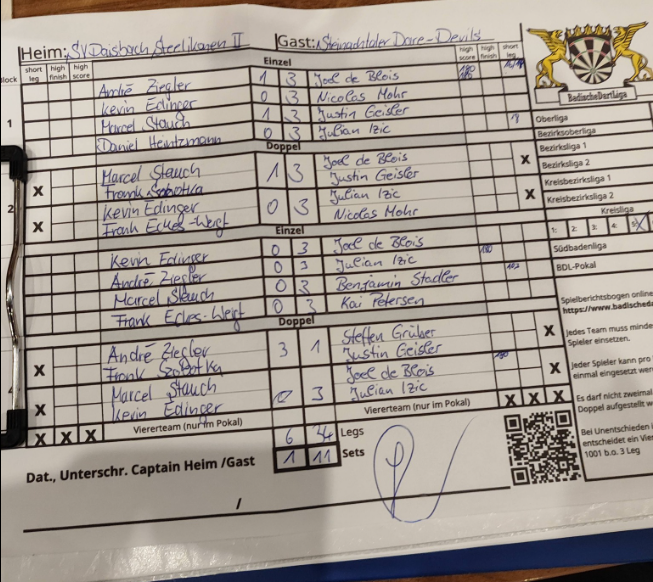 Heim: SV Daisbach Steelikanen II Gast: Steinachtaler Dare-Devils
short leg high finish high score Einzel high score high finish short leg
André Ziegler 1 3 Joel de Blois 180
Kevin Edinger 0 3 Nicolas Mohr
1 Marcel Stauch 1 3 Justin Geisler
Daniel Heintzmann 0 3 Julian Izic 18
Doppel
Marcel Stauch 1 3 Joel de Blois X
X Frank Sobotka Justin Geisler
2 Kevin Edinger 0 3 Julian Izic X
X Frank Eckes-Weigt Nicolas Mohr
Einzel
Kevin Edinger 0 3 Joel de Blois 180
André Ziegler 0 3 Julian Izic
Marcel Stauch 0 3 Benjamin Stadler
Frank Eckes-Weigt 0 3 Kai Petersen
Doppel
André Ziegler 3 1 Steffen Gruber X
X Frank Sobotka Justin Geisler
Marcel Stauch 0 3 Joel de Blois 180 X
X Kevin Edinger Julian Izic
X X X Viererteam (nur im Pokal) Viererteam (nur im Pokal) X X X
6 34 Legs
1 11 Sets
Dat., Unterschr. Captain Heim /Gast
/
BadischeDartLiga
Oberliga
Bezirksoberliga
Bezirksliga 1
Bezirksliga 2
Kreisbezirksliga 1
Kreisbezirksliga 2
Kreisliga
1: 2: 3: 4: 5: X
Südbadenliga
BDL-Pokal
Spielberichtsbogen online
https://www.badisched
Jedes Team muss minde
Spieler einsetzen.
Jeder Spieler kann pro
einmal eingesetzt wer
Es darf nicht zweimal
Doppel aufgestellt w
Bei Unentschieden i
entscheidet ein Vier
1001 b.o. 3 Leg